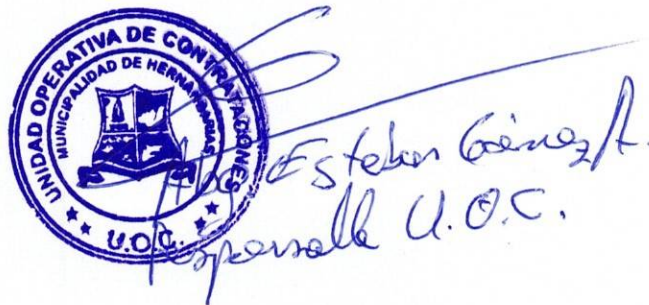 UNIDAD OPERATIVA DE CONTRATACIONES
MUNICIPALIDAD DE HERNANDARIAS
U.O.C.
Abg. Esteban Gómez A.
Responsable U.O.C.